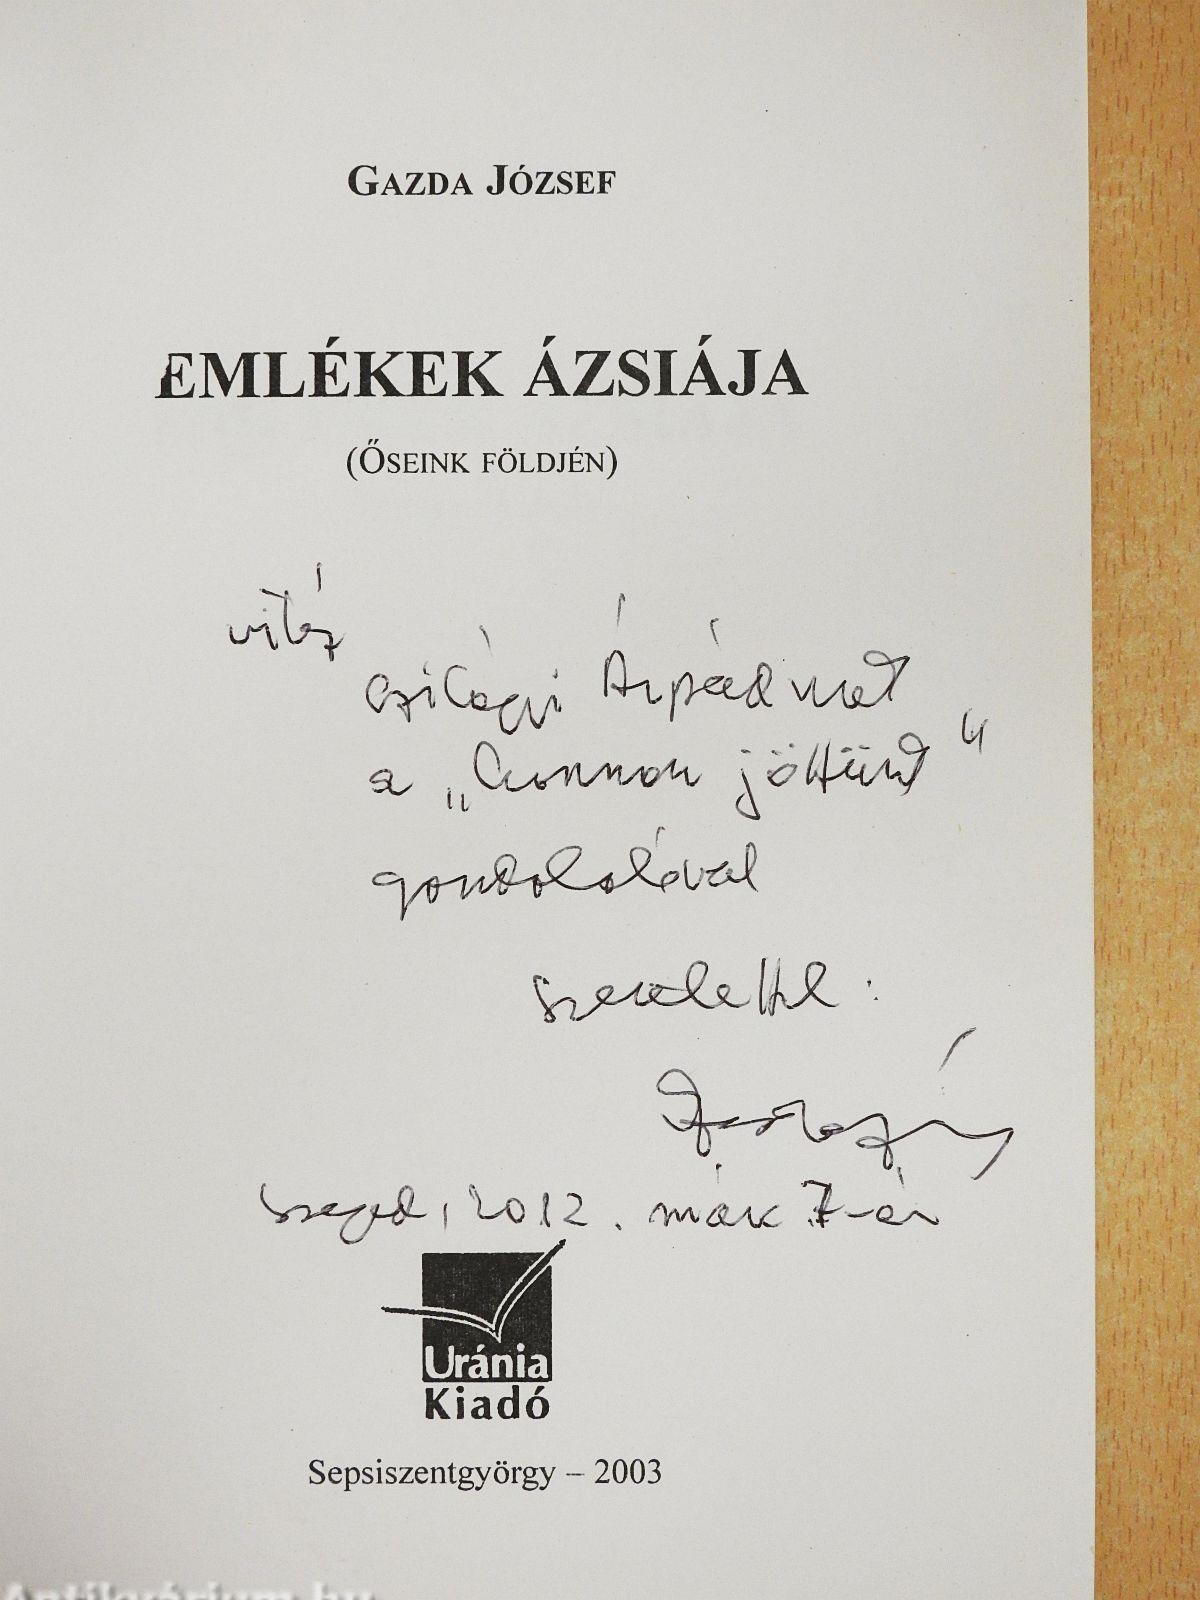 GAZDA JÓZSEF
EMLÉKEK ÁZSIÁJA
(ŐSEINK FÖLDJÉN)
vitéz
Szilágyi Árpádnak
a „Honnan jöttünk"
gondolatával
szeretettel:
Gazda József
Szeged, 2012. márc 7-én
Uránia
Kiadó
Sepsiszentgyörgy – 2003
Antikvárium.hu